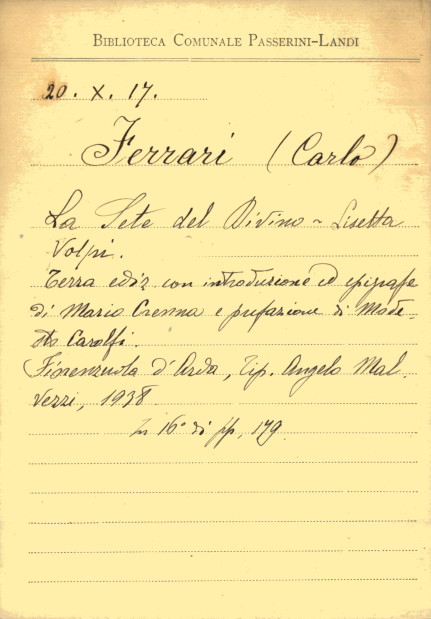 BIBLIOTECA COMUNALE PASSERINI-LANDI
20. X. 17.
Ferrari (Carlo)
La Sete del Divino ~ Lisetta
Volpi.
Terza ediz con introduzione ed epigrafe
di Mario Crenna e prefazione di Mode-
sto Carolfi.
Fiorenzuola d'Arda, Tip. Angelo Mal.
vezzi, 1938.
In 16° di pp, 179.